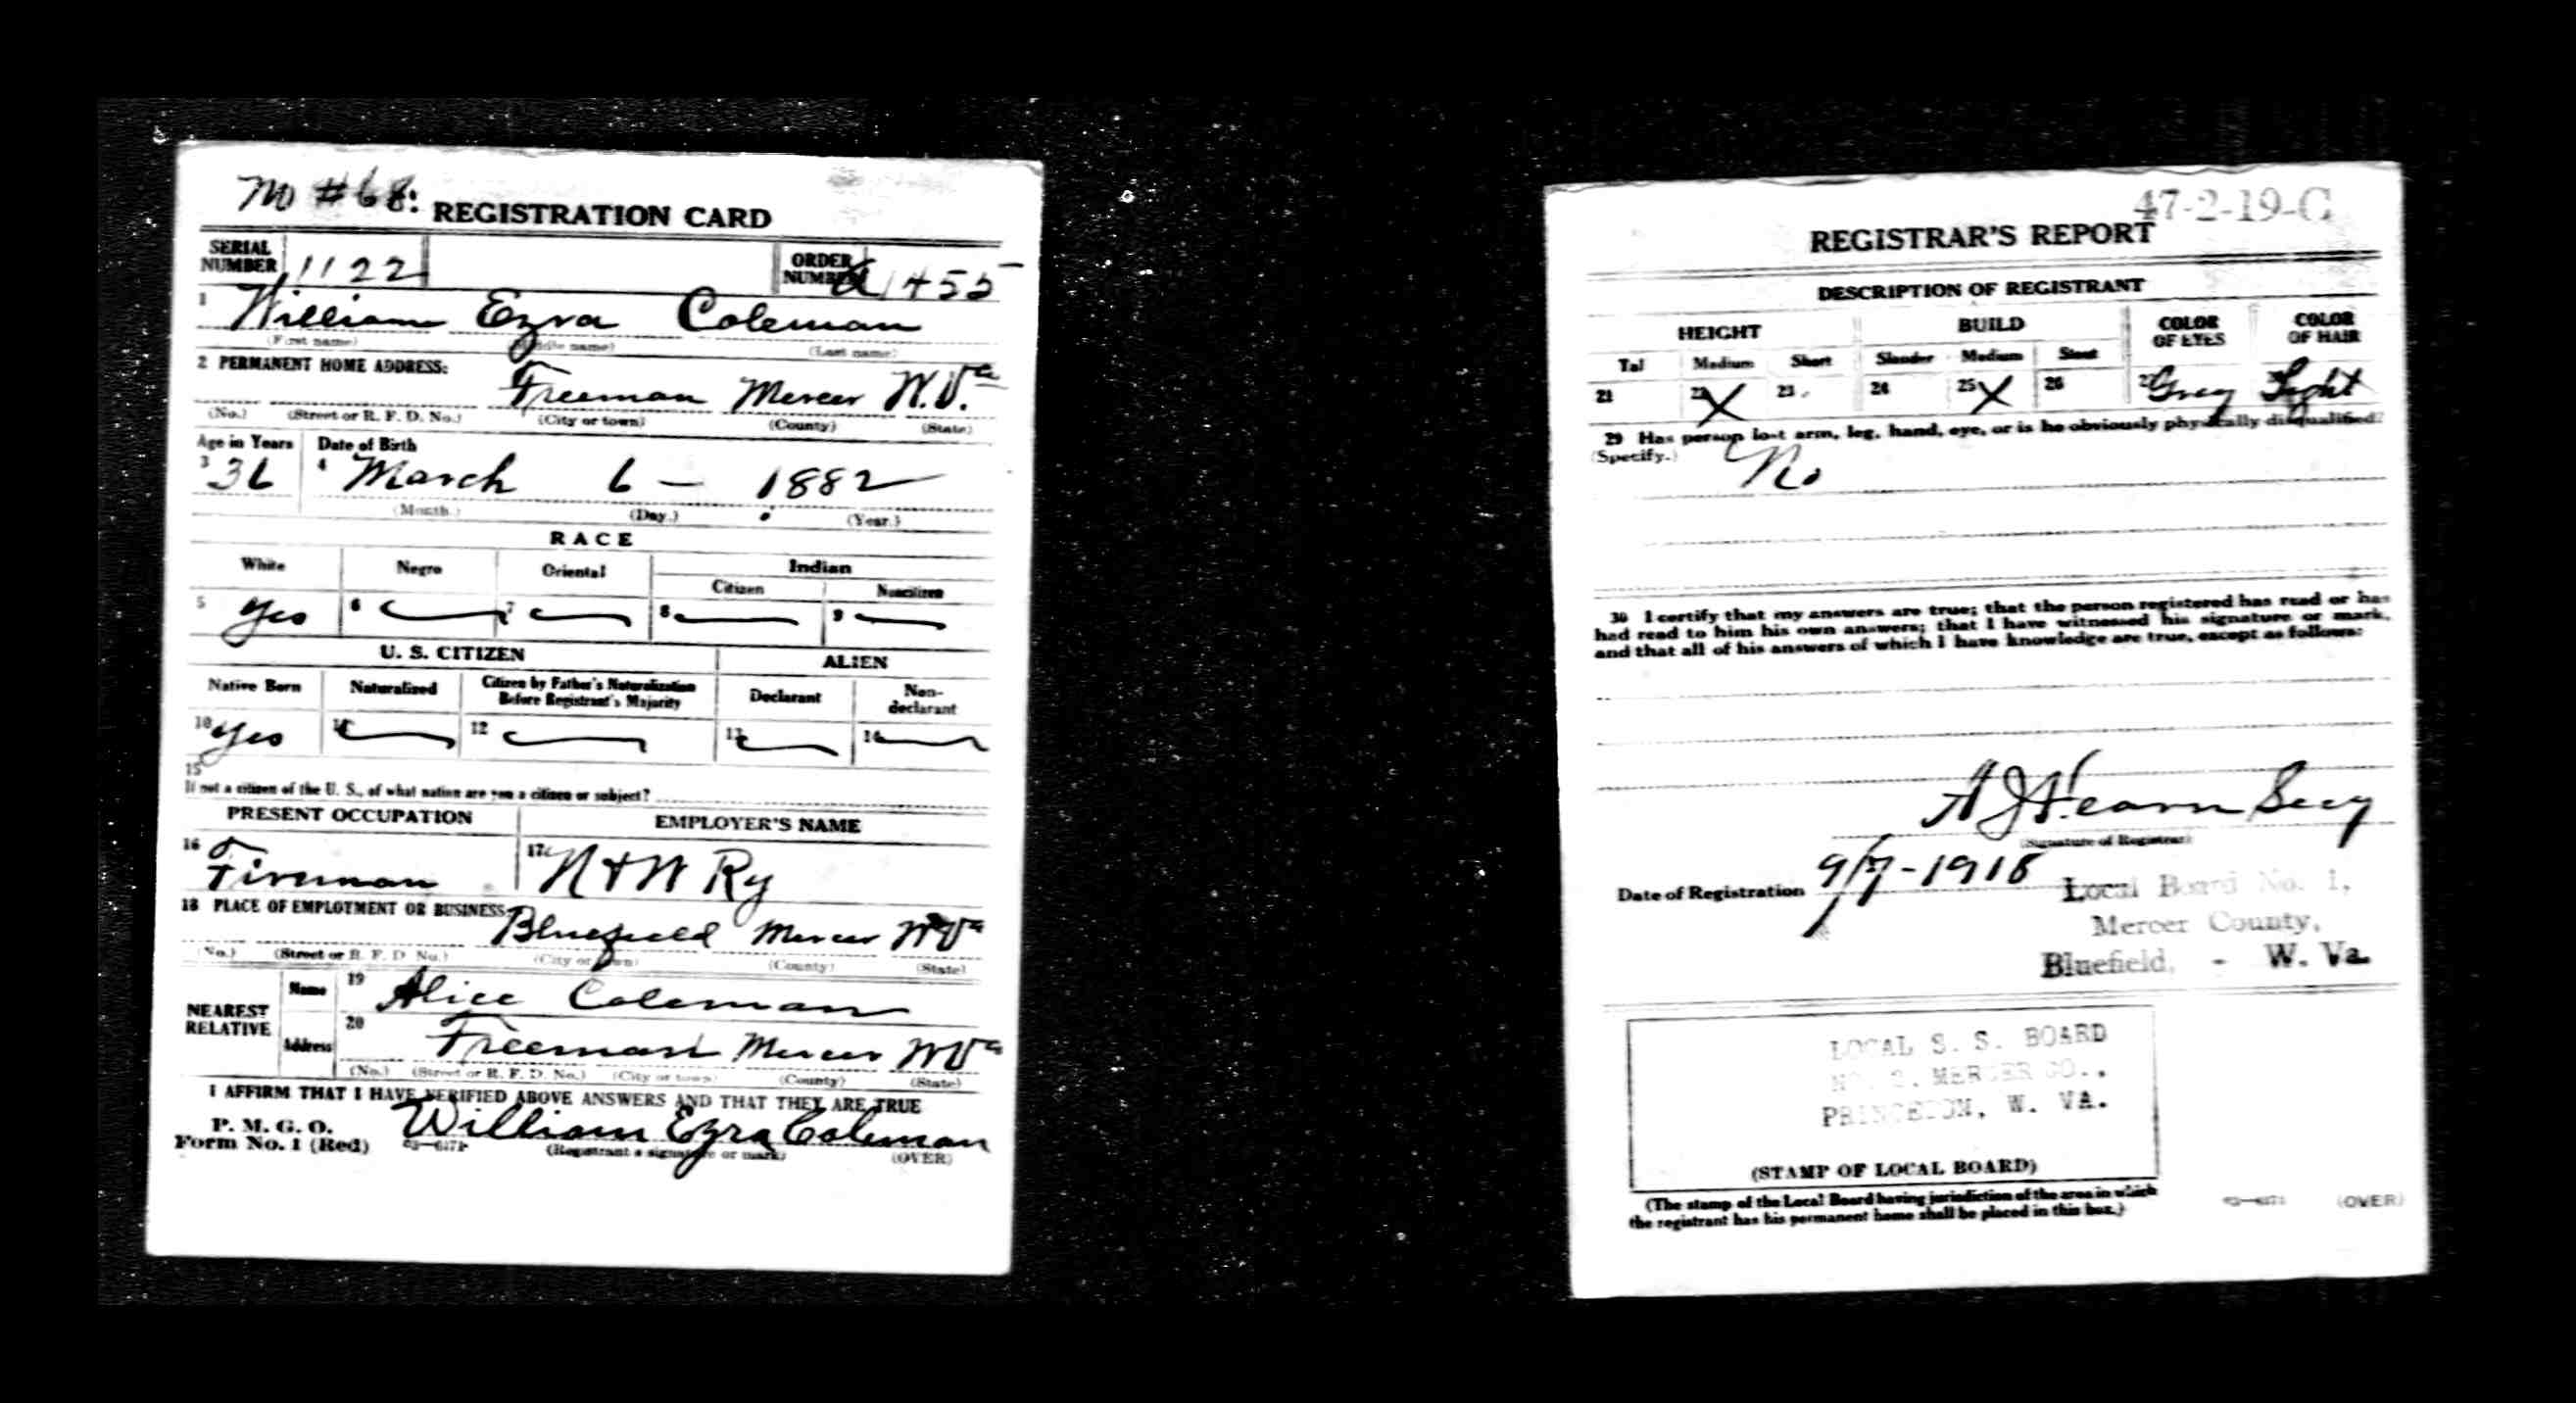 M #68:
REGISTRATION CARD
SERIAL NUMBER 1122 ORDER NUMBER A1455
1 William Ezra Coleman
(First name) (Middle name) (Last name)
2 PERMANENT HOME ADDRESS:
Freeman Mercer W.Va
(No.) (Street or R. F. D. No.) (City or town) (County) (State)
Age in Years Date of Birth
3 36 4 March 6 - 1882
(Month.) (Day.) (Year.)
RACE
White Negro Oriental Indian
Citizen Noncitizen
5 Yes 6 7 8 9
U. S. CITIZEN ALIEN
Native Born Naturalized Citizen by Father's Naturalization Before Registrant's Majority Declarant Non-declarant
10 Yes 11 12 13 14
15
If not a citizen of the U. S., of what nation are you a citizen or subject?
PRESENT OCCUPATION EMPLOYER'S NAME
16 Fireman 17 N & W Ry
18 PLACE OF EMPLOYMENT OR BUSINESS:
Bluefield Mercer WVa
(No.) (Street or R. F. D. No.) (City or town) (County) (State)
NEAREST RELATIVE
Name 19 Alice Coleman
Address 20 Freeman Mercer WVa
(No.) (Street or R. F. D. No.) (City or town) (County) (State)
I AFFIRM THAT I HAVE VERIFIED ABOVE ANSWERS AND THAT THEY ARE TRUE
P. M. G. O.
Form No. 1 (Red) 03—6171 William Ezra Coleman
(Registrant's signature or mark) (OVER)
47-2-19-C
REGISTRAR'S REPORT
DESCRIPTION OF REGISTRANT
HEIGHT BUILD COLOR OF EYES COLOR OF HAIR
Tall Medium Short Slender Medium Stout
21 22 X 23 24 25 X 26 27 Grey 28 Light
29 Has person lost arm, leg, hand, eye, or is he obviously physically disqualified?
(Specify.) No
30 I certify that my answers are true; that the person registered has read or has
had read to him his own answers; that I have witnessed his signature or mark,
and that all of his answers of which I have knowledge are true, except as follows:
A J Hearn Secy
(Signature of Registrar)
Date of Registration 9/7-1918
Local Board No. 1,
Mercer County,
Bluefield, - W. Va.
LOCAL S. S. BOARD
NO. 2. MERCER CO.,
PRINCETON, W. VA.
(STAMP OF LOCAL BOARD)
(The stamp of the Local Board having jurisdiction of the area in which
the registrant has his permanent home shall be placed in this box.)
03—6171 (OVER)